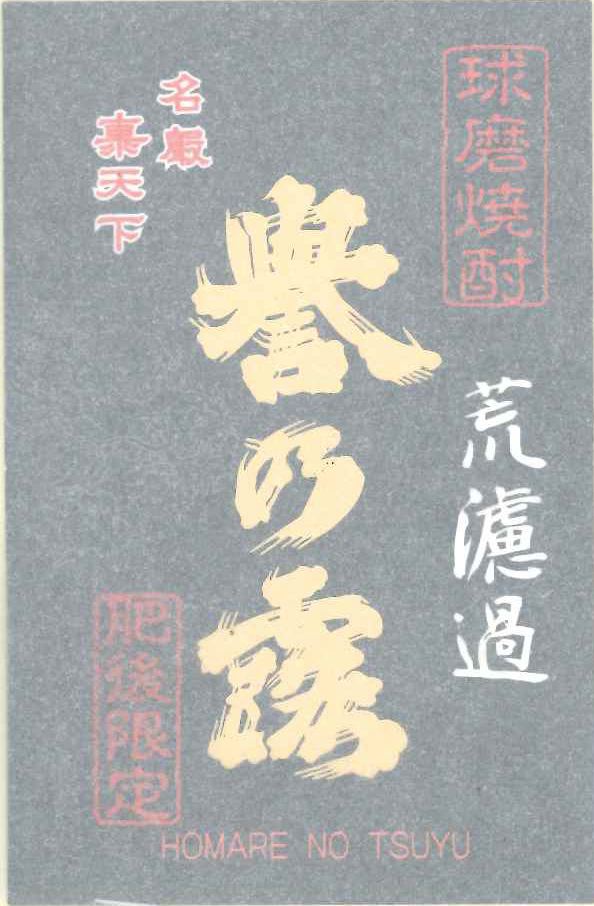 球磨焼酎
荒濾過
譽の露
名嚴
東天下
肥後限定
HOMARE NO TSUYU